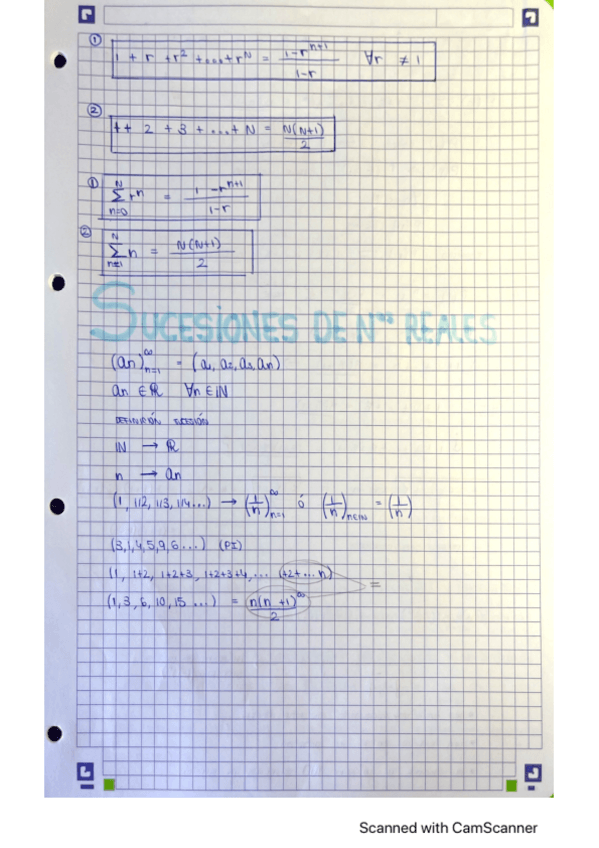 ① 1 + r + r² + .... + r^N = (1-r^(n+1))/(1-r) ∀r ≠ 1
② 1+ 2 + 3 + ... + N = N(N+1)/2
① N Σ n=0 r^n = (1-r^(n+1))/(1-r)
② N Σ n=1 n = N(N+1)/2
SUCESIONES DE Nºˢ REALES
(an)^∞ n=1 = (a1, a2, a3, an)
an ∈ ℝ ∀n ∈ ℕ
DEFINICIÓN SUCESIÓN
ℕ → ℝ
n → an
(1, 1/2, 1/3, 1/4...) → (1/n)^∞ n=1 ó (1/n) n∈ℕ = (1/n)
(3,1,4,5,9,6...) (PI)
(1, 1+2, 1+2+3, 1+2+3+4,... (+2+...n) =
(1,3,6,10,15 ...) = n(n+1)^∞/2
Scanned with CamScanner